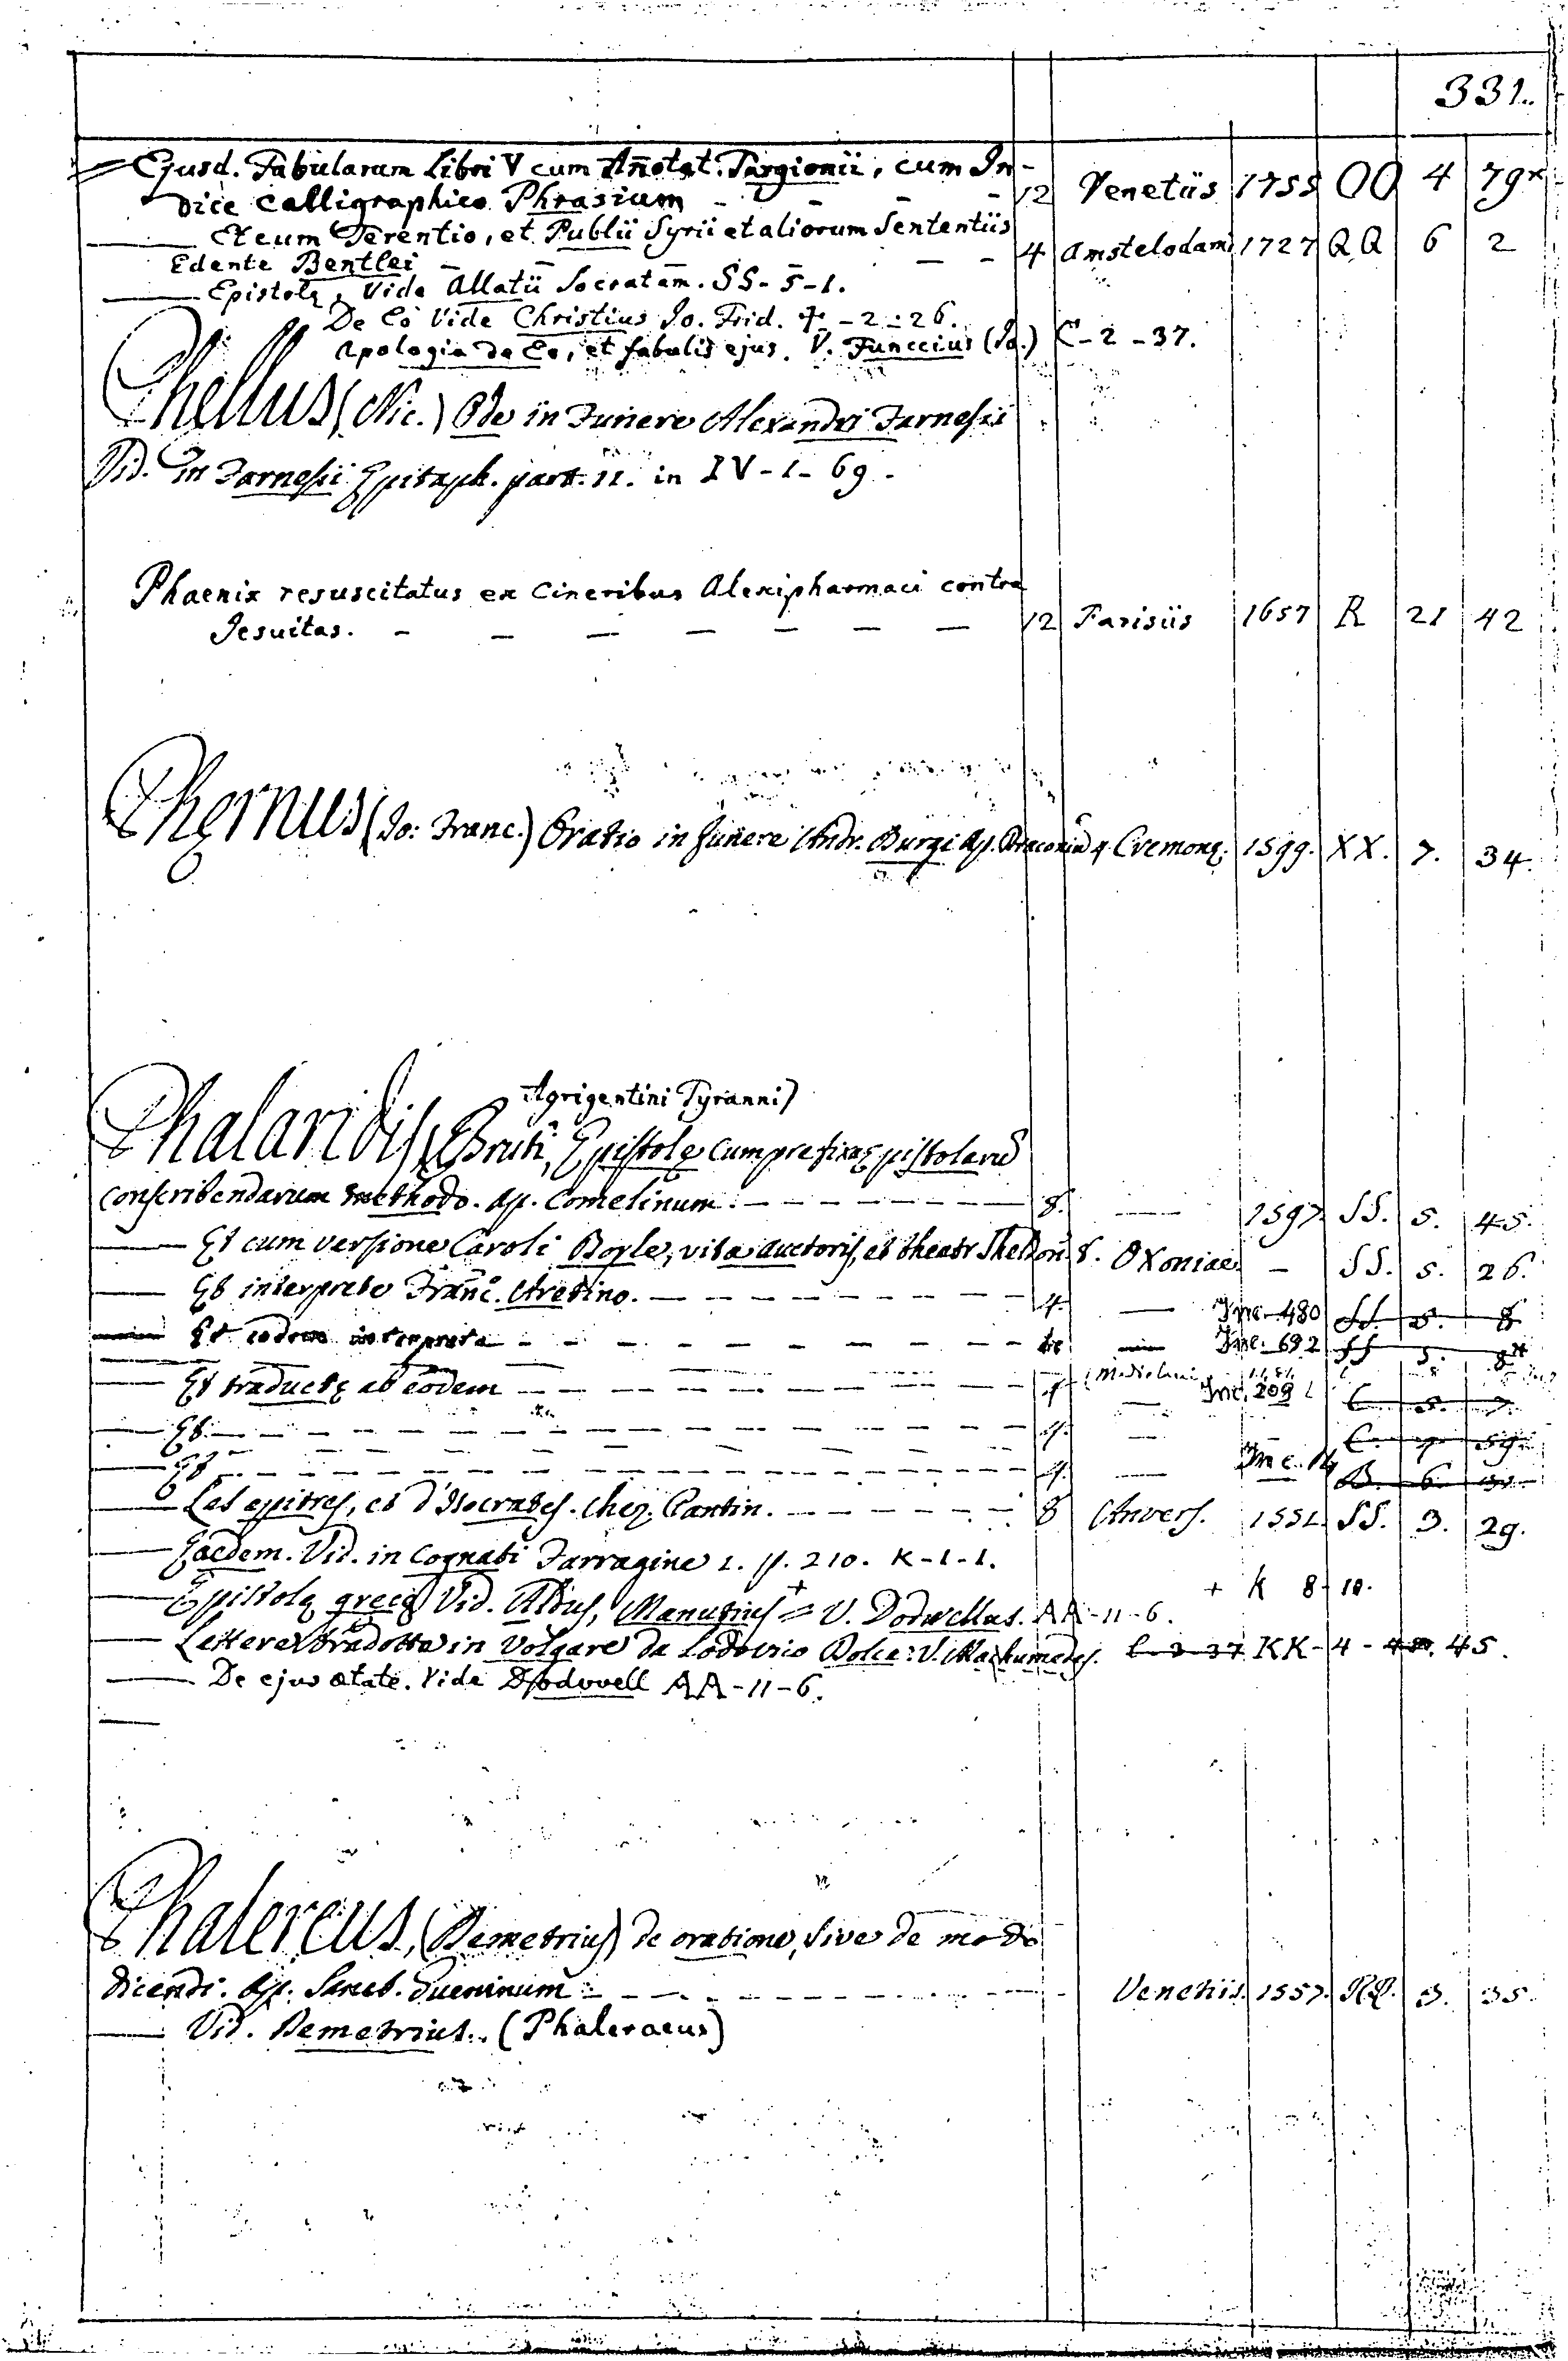 331.
Ejusd. Fabularum Libri V cum Annotat. Targionii, cum In-
dice Calligraphico Phrasium - - - - 12 Venetiis 1755 OO 4 79x
Et cum Terentio, et Publii Syrii et aliorum Sententiis
Edente Bentlei - - - - - 4 Amstelodami 1727 QQ 6 2
Epistolę, Vide Allatii Socratem. SS-5-1.
De Eo Vide Christius Jo. Frid. -2-26.
Apologia de Eo, et fabulis ejus. V. Funccius (Jo.) C-2-37.
Phellus (Nic.) Ode in Funere Alexandri Farnesii
Vid. In Farnesii Epitaph. part. II. in IV-1-69.
Phaenix resuscitatus ex Cineribus Alexipharmaci contra
Jesuitas. - - - - - - - 12 Parisiis 1657 R 21 42
Phęrnus (Jo: Franc.) Oratio in funere Andr. Burgi Ap. Draconiū 4. Cremonę. 1599. XX. 7. 34.
Agrigentini Tyranni)
Phalaridis, Bruti, Epistolę cum prefixa epistolarū
conscribendarum methodo. Ap. Comelinum. - - - 8. — 1597 SS. 5. 45.
— Et cum versione Caroli Boyle, vita auctoris, et theatr Sheldon. 8. Oxoniae. - SS. 5. 26.
— Et interprete Franc. Aretino. - - - 4. — Inc. 480 SS. 5. 8
— Et eodem interprete - - - — Inc. 692 SS 5. 8
— Et traductę ab eodem - - - 4 (Mediolani Inc. 209 C. 5. 7.
— Et. - - - 4. — C. 7. 59.
— Et - - - 4. — Inc. 14 B. 6.
— Les epitres, et d'Isocrates. Chez Plantin. - - - 8 Anvers. 1551 SS. 3. 29.
— Eaedem. Vid. in Cognati Farragine 1. p. 210. K-1-1.
— Epistolę gręcę Vid. Aldus, Manutius + = V. Dodwellus. AA-11-6. + K 8 10.
— Lettere tradotte in Volgare da Lodovico Dolce: V. Mahumedes. C-3-37 KK-4- 45.
— De ejus ætate. Vide Dodwell AA-11-6.
Phalereus, (Demetrius) de oratione, sive de modo
dicendi. Ap. Sanct. Gueninum - - - Venetiis 1557. RR. 3. 35.
— Vid. Demetrius. (Phaleraeus)